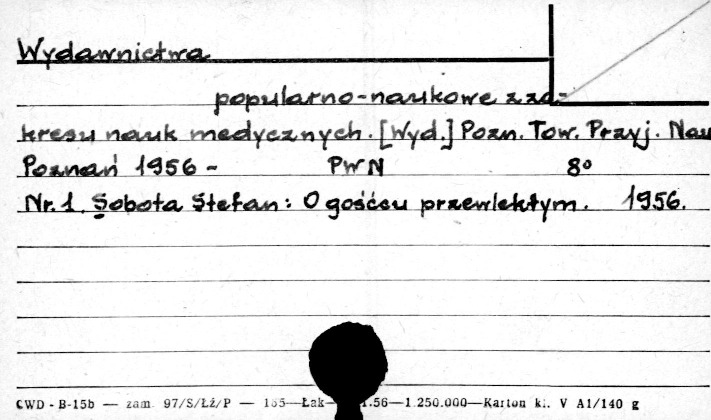 Wydawnictwa
popularno-naukowe z za-
kresu nauk medycznych. [Wyd.] Pozn. Tow. Przyj. Nau
Poznań 1956 - PWN 8°
Nr. 1. Sobota Stefan: O gośćcu przewlekłym. 1956.
CWD - B-15b — zam. 97/S/Łź/P — Łak— .56—1.250.000—Karton kl. V A1/140 g